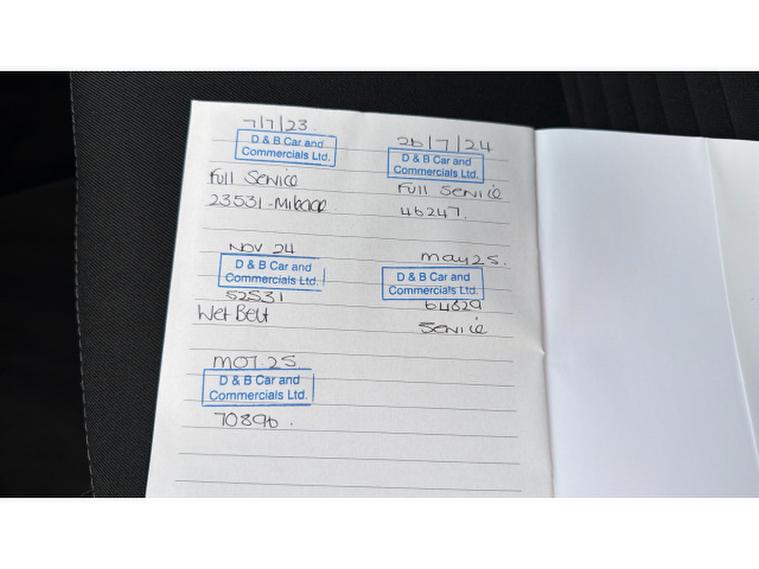 7/7/23.
D & B Car and
Commercials Ltd.
Full Service
23531-Mileage
26/7/24
D & B Car and
Commercials Ltd.
Full Service
46247.
NOV 24
D & B Car and
Commercials Ltd.
52531
Wet Belt
May 25.
D & B Car and
Commercials Ltd.
64629
Service
MOT.25
D & B Car and
Commercials Ltd.
70896.